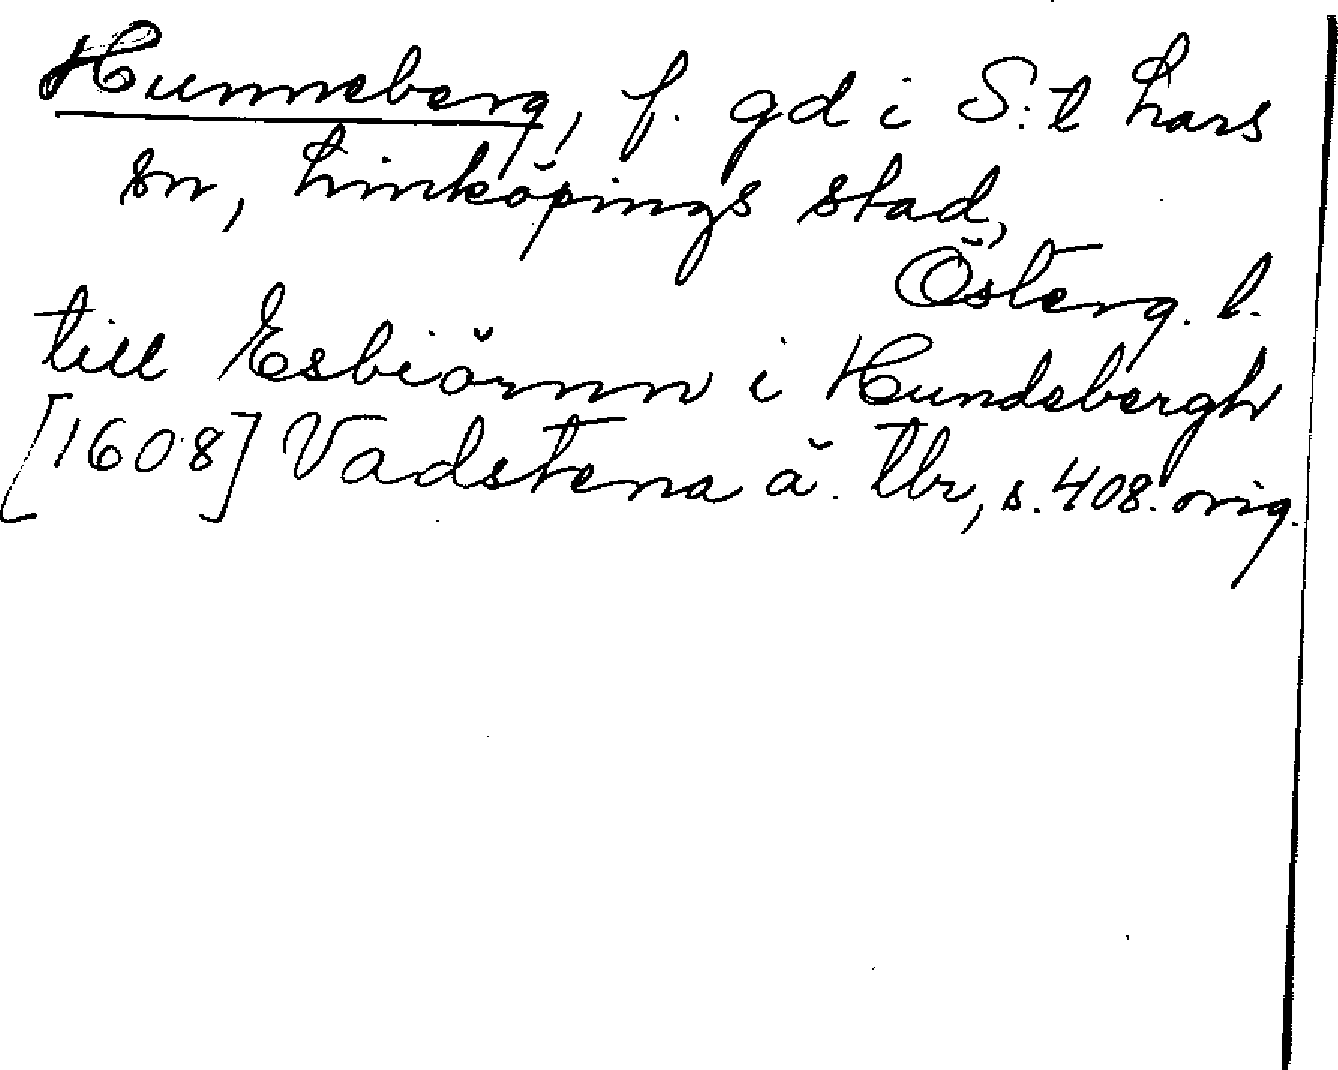 Hunneberg, f. gd i S:t Lars
sn, Linköpings stad,
Österg. l.
till Esbiörnn i Hundebergh
[1608] Vadstena ä. tbr, s. 408. orig.